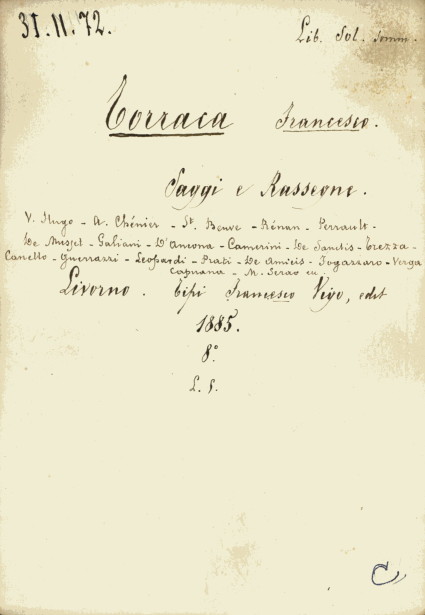 31.11.72.
Lib. Sol. Somm.
Torraca Francesco.
Saggi e Rassegne.
V. Hugo - A. Chénier - St. Beuve - Rénan - Perrault -
De Musset - Galiani - D'Ancona - Camerini - De Sanctis - Trezza -
Canello - Guerrazzi - Leopardi - Prati - De Amicis - Fogazzaro - Verga
Capuana - M. Serao
Livorno. Tipi Francesco Vigo, edit
1885.
8°
L. 5.
C